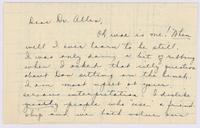 Dear Dr. Allen,
Oh woe is me! When
will I ever learn to be still.
I was only doing a bit of ribbing
when I asked that silly question
about Don sitting on the bench.
I am most upset at your
serious interpretation! I dislike
greatly people who 'use' a friend
ship and we both value ours